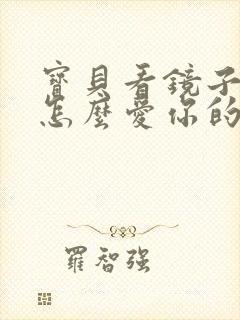 寶貝看鏡子
怎麼愛你的
羅智強